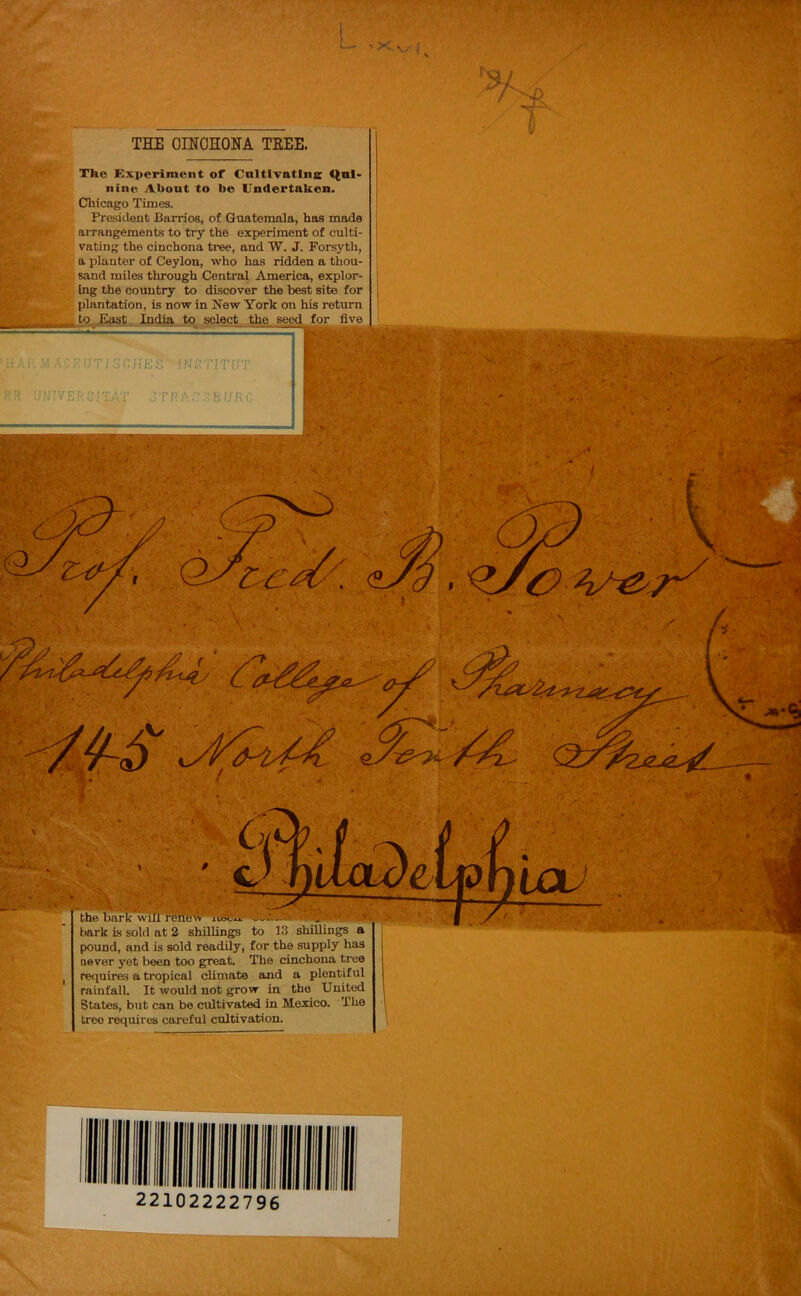 L. xvi.
THE CINCHONA TREE.
The Experiment of Cultivating Qui-
nine About to be Undertaken.
Chicago Times.
President Barrios, of Guatemala, has made
arrangements to try the experiment of culti-
vating the cinchona tree, and W. J. Forsyth,
a planter of Ceylon, who has ridden a thou-
sand miles through Central America, explor-
ing the country to discover the best site for
plantation, is now in New York on his return
to East India to select the seed for five
PHARMACEUTISCHES INSTITUT
ER UNIVERSITÄT STRASSBURG
Prof. Fred. B. Power
Philadelphia College of Pharmacy
145 North Tenth Street
Philadelphia
the bark will renew
bark is sold at 2 shillings to 13 shillings a
pound, and is sold readily, for the supply has
never yet been too great. The cinchona tree
requires a tropical climate and a plentiful
rainfall. It would not grow in the United
States, but can be cultivated in Mexico. The
tree requires careful cultivation.
22102222796